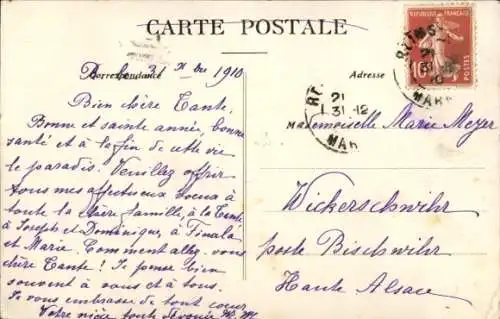 CARTE POSTALE
REPUBLIQUE FRANÇAISE
10
POSTES
REIMS
21
31
10
MAR
Correspondance
Adresse
le 31 Xbre 1910
Bien chère Tante,
Bonne et sainte année, bonne
santé et à la fin de cette vie
le paradis. Veuillez offrir
tous mes affectueux voeux à
toute la chère famille, à la Tante
à Joseph et Dominique, à
et Marie. Comment allez-vous
chère Tante! Je pense bien
souvent à vous et à tous.
Je vous embrasse de tout coeur
Votre nièce toute dévouée M. M.
RE
21
31-12
MAR
Mademoiselle Marie Meyer
Wickerschwihr
poste Bischwihr
Haute Alsace